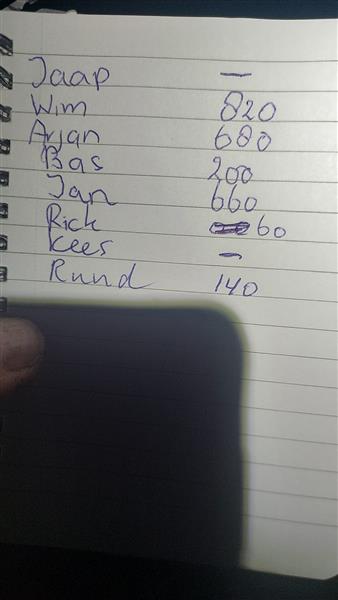 Jaap —
Wim 820
Arjan 680
Bas 200
Jan 660
Rick 60
Kees —
Ruud 140